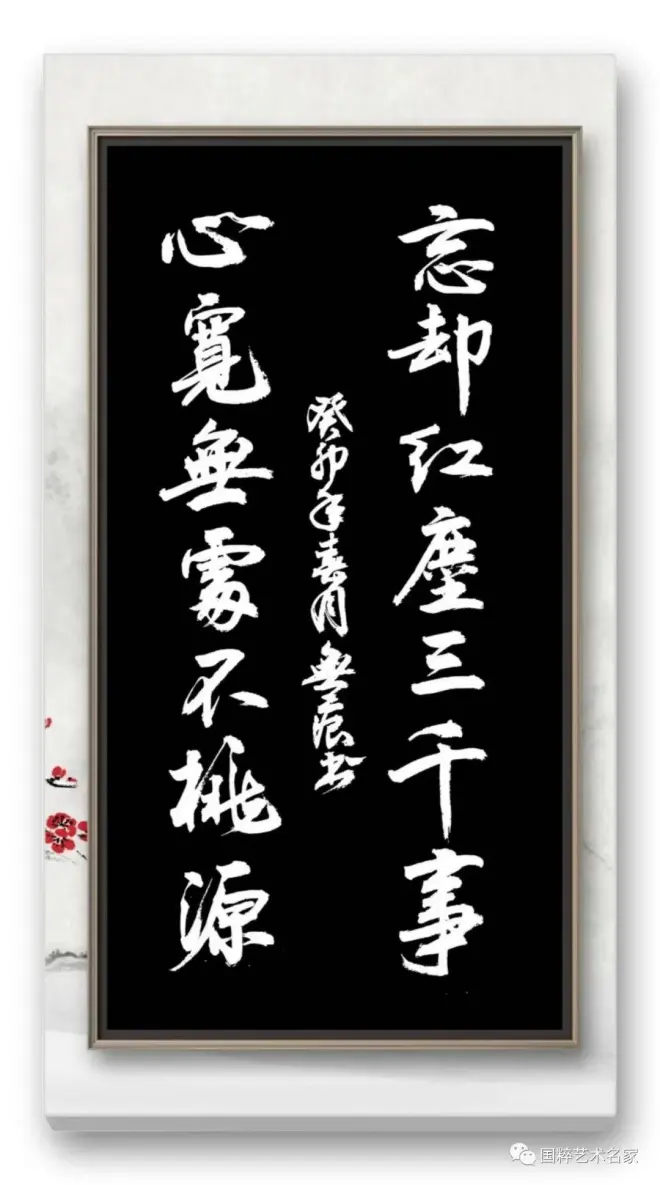 忘却红塵三千事
心寬無處不桃源
癸卯年喜月無书
国粹艺术名家